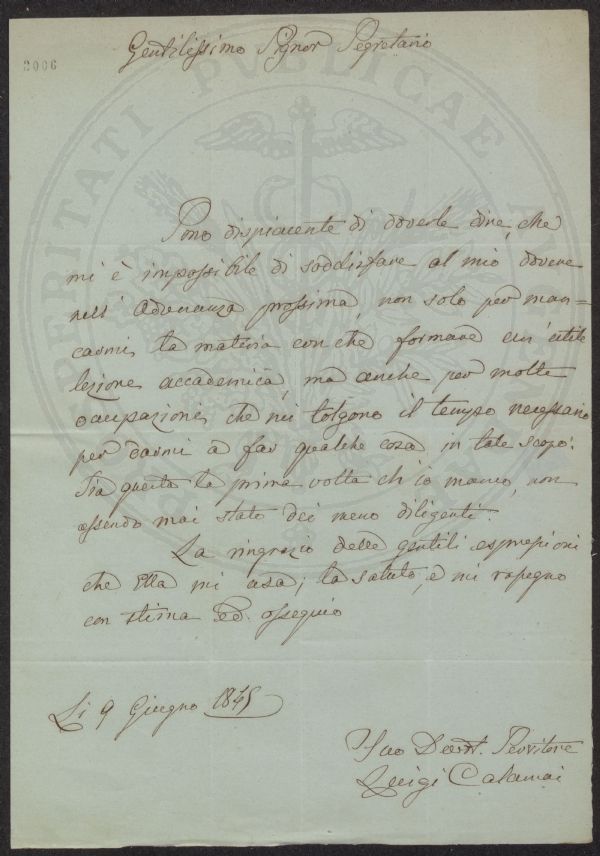 2006
Gentilissimo Signor Segretario
Sono dispiacente di doverle dire, che
mi è impossibile di soddisfare al mio dovere
nell' adunanza prossima, non solo per man=
carmi la materia con che formare un' utile
lezione accademica, ma anche per molte
ocupazioni che mi tolgono il tempo necessario
per darmi a far qualche cosa in tale scopo.
Sia questa la prima volta ch' io manco, non
essendo mai stato dei meno diligenti.
La ringrazio delle gentili espressioni
che Ella mi usa; la saluto, e mi rassegno
con stima ed ossequio
Li 9 Giugno 1845
Suo Devot. Servitore
Luigi Calamai